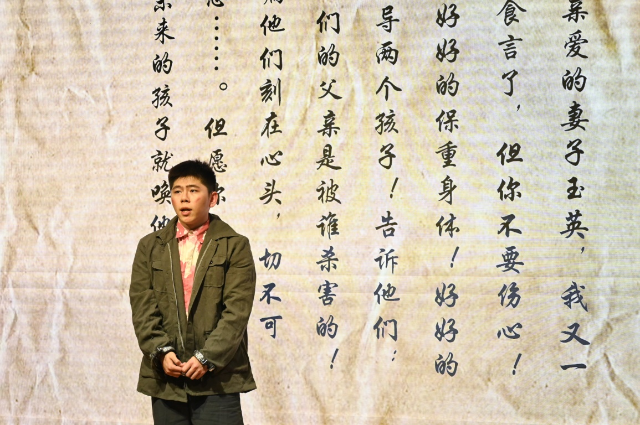 亲爱的妻子玉英，我又一
食言了，但你不要伤心！
好好的保重身体！好好的
导两个孩子！告诉他们：
们的父亲是被谁杀害的！
他们刻在心头，切不可
……。但愿你
来的孩子就唤他